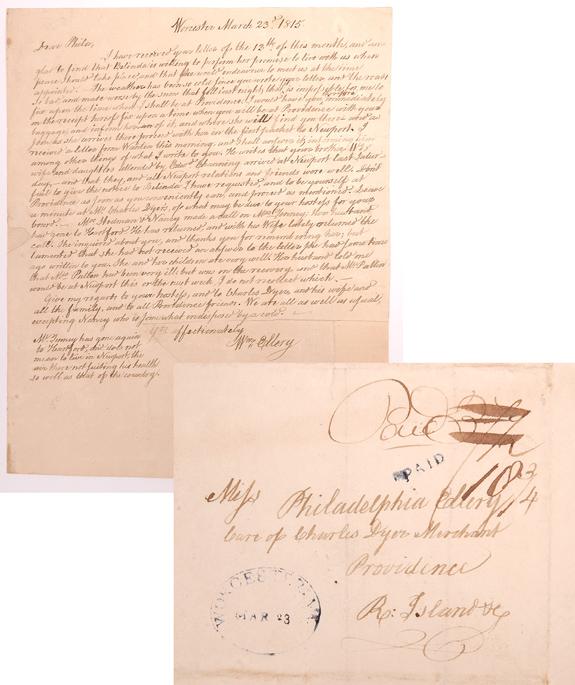 Worcester March 23d. 1815.
Dear Phila,
I have received your letter of the 13th. of this month, and am
glad to find that Belinda is willing to perform her promise to live with us when
peace should take place, and that she will endeavour to meet us at the time
appointed. The weather has been so cold since you wrote your letter and the roads
so bad, and made worse by the snow that fell last night that is impossible for me to
fix upon the time when I shall be at Providence. I would have you immediately
on the receipt hereof fix upon a time when you will be at Providence with your
baggage, and inform her of it, and where she will find you there and as
soon as she arrives there proceed with her in the first packet to Newport. I
received a letter from this morning, and shall answer it, and inform him
among other things of what I write to you. He writes that your brother Wms.
wife and daughters attended by Edwd. Channing arrived at Newport last Satur-
day, and that they, and all Newport relations and friends were well. Don't
fail to give the notice to Belinda I have requested, and to be yourself at
Providence as soon as you conveniently can, and proceed as mentioned. Leave
a minute at Mr. Charles Dyer's, of what may be due to your hostess for your
board. Mrs. Stedman & Nancy made a call on Mrs. Tenney; her husband
had gone to Hartford. He has returned, and with his Wife lately returned the
call. She inquired about you, and thanks you for remembering her; but
lamented that she had not received an answer to the letter she had some time
ago written to you. She and her children are very well. Her husband told me
that Mrs. Patten had been very ill; but was on the recovery and that Mr. Patten
would be at Newport this or the next week I do not recollect which.
Give my regards to your hostess, and to Charles Dyer and his wife and
all the family, and to all Providence friends. We are all as well as usual,
excepting Nancy who is somewhat indisposed by a cold.
Yrs. affectionately
Wm. Ellery
Mr. Tenney has gone again
to Hartford, and does not
mean to live in Newport, the
air there not suiting his health
so well as that of the country.
Paid
PAID
18 3/4
Miss Philadelphia Ellery
Care of Charles Dyer Merchant
Providence
R: Island
WORCESTER
MAR 23